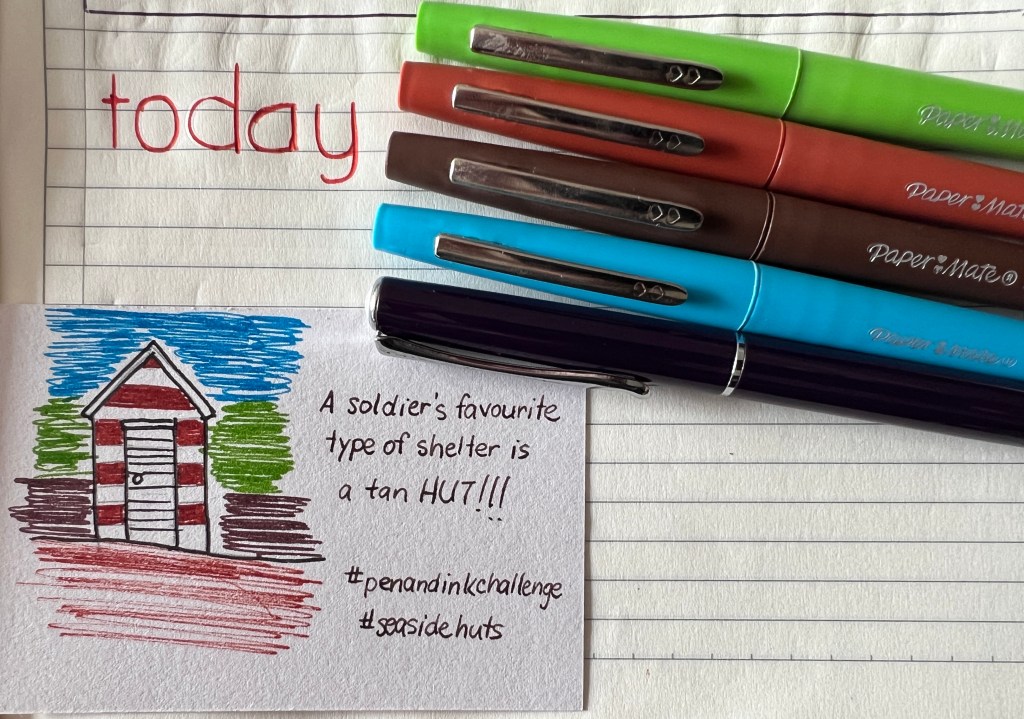 today
PAPER MATE
PAPER MATE
PAPER MATE®
PAPER MATE
A soldier's favourite
type of shelter is
a tan HUT!!!
#penandinkchallenge
#seasidehuts